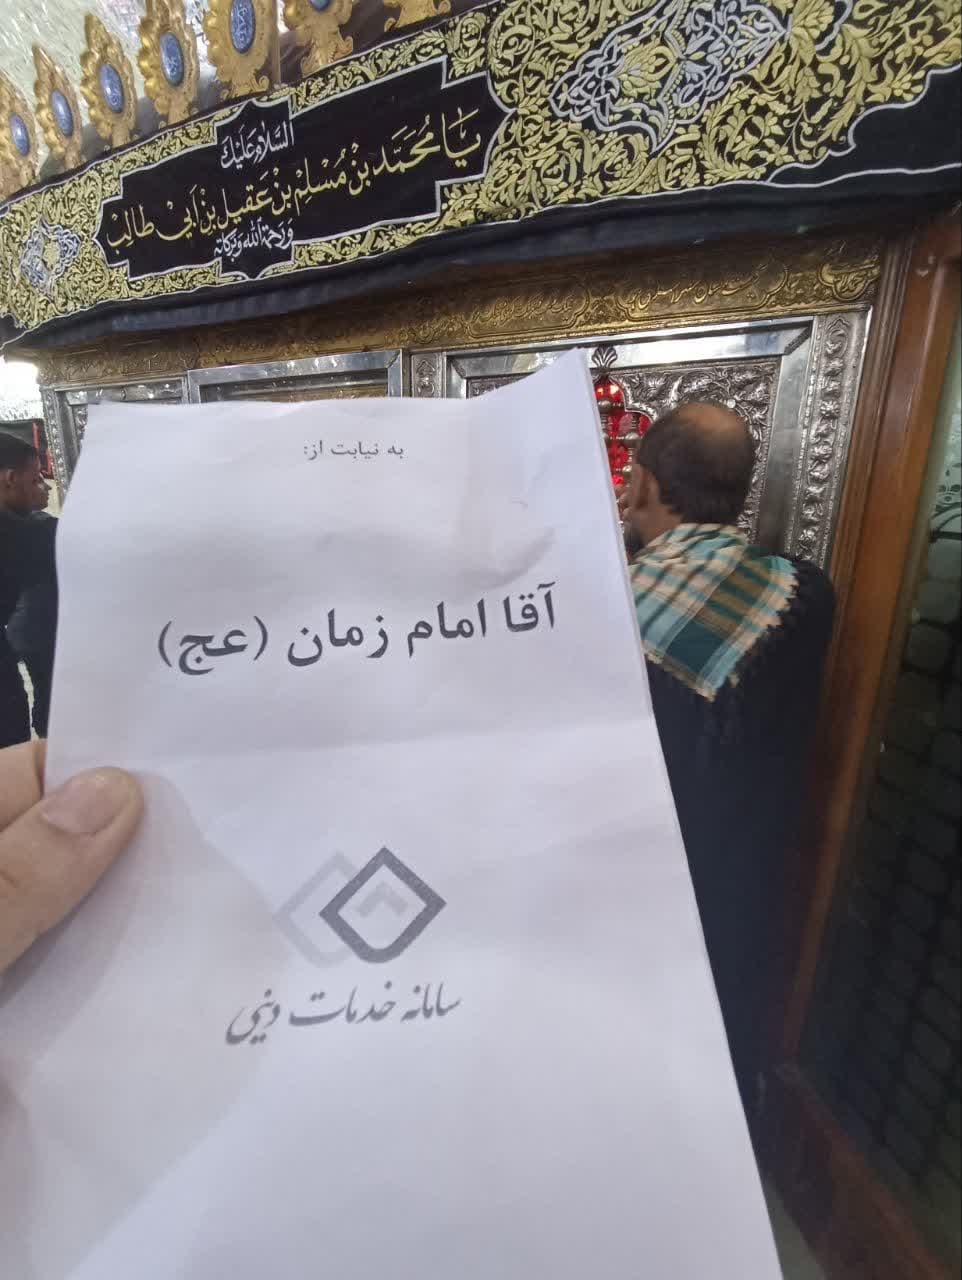 السَّلامُ عَلَيْكَ
يَا مُحَمَّد بِنْ مُسْلِمْ بِنْ عَقيل بِنْ اَبي طالِبْ
وَرَحْمَةُ اللهِ وَبَرَكاتُهُ
به نیابت از:
آقا امام زمان (عج)
سامانه خدمات دینی